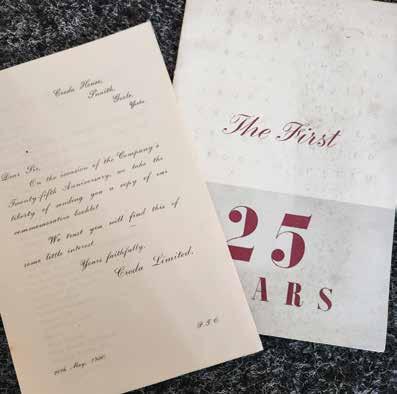 Croda House,
Snaith,
Goole,
Yorks.
Dear Sir,
On the occasion of the Company's
Twenty-fifth Anniversary, we take the
liberty of sending you a copy of our
commemorative booklet.
We trust you will find this of
some little interest.
Yours faithfully,
Croda Limited,
P.T.O.
The First
25
EARS